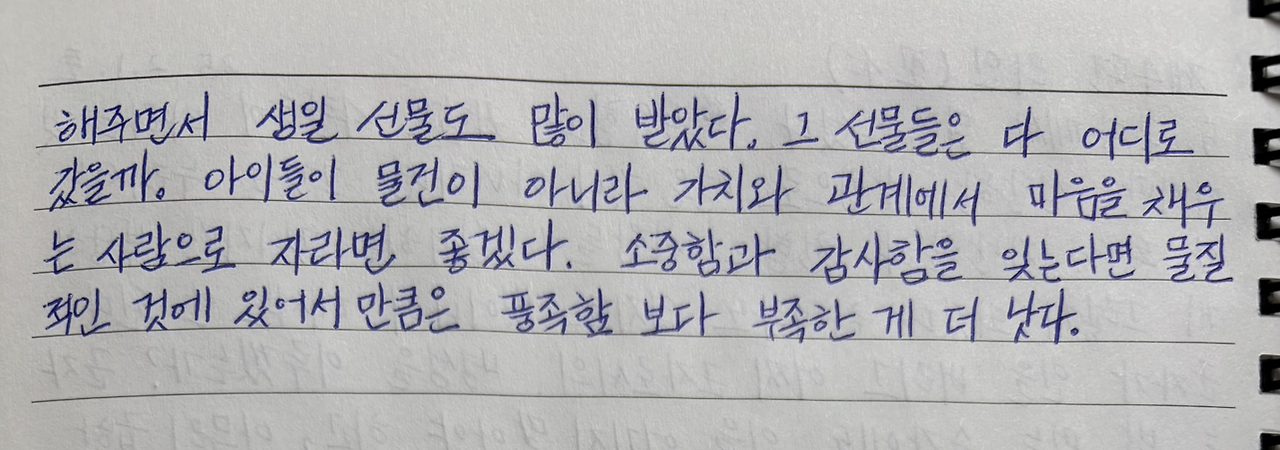 해주면서 생일 선물도 많이 받았다. 그 선물들은 다 어디로
갔을까. 아이들이 물건이 아니라 가치와 관계에서 마음을 채우
는 사람으로 자라면 좋겠다. 소중함과 감사함을 잊는다면 물질
적인 것에 있어서 만큼은 풍족함 보다 부족한 게 더 낫다.